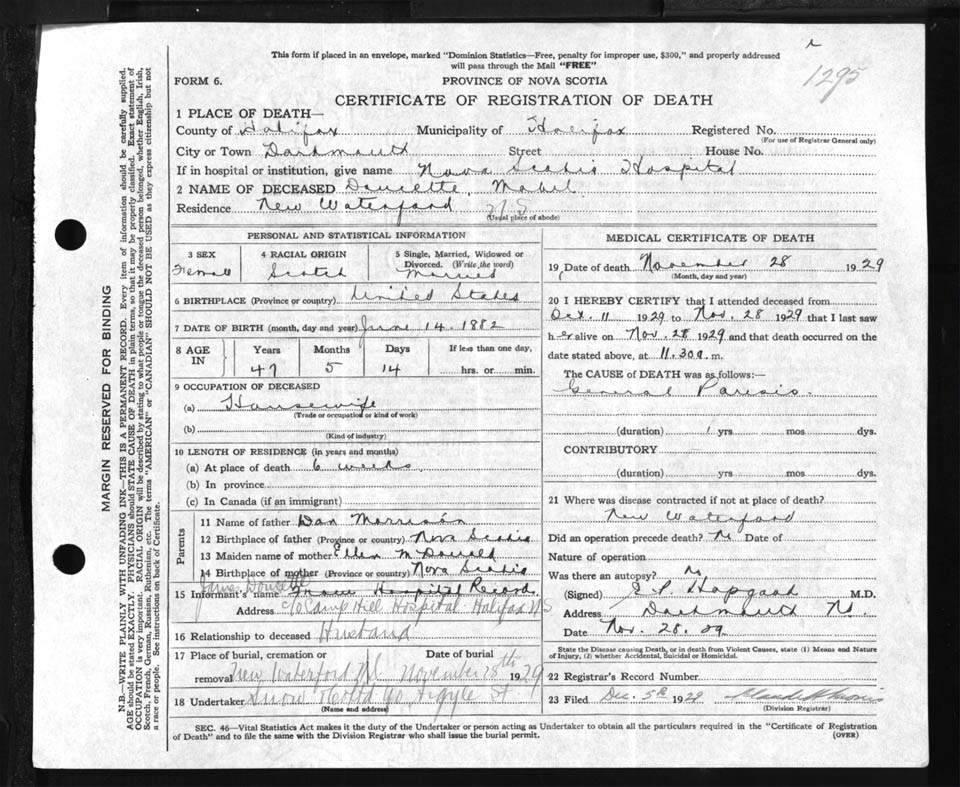 This form if placed in an envelope, marked "Dominion Statistics—Free, penalty for improper use, $300," and properly addressed
will pass through the Mail "FREE"
1295
FORM 6.
PROVINCE OF NOVA SCOTIA
CERTIFICATE OF REGISTRATION OF DEATH
1 PLACE OF DEATH—
County of Halifax Municipality of Halifax Registered No.
(For use of Registrar General only)
City or Town Dartmouth Street House No.
If in hospital or institution, give name Nova Scotia Hospital
2 NAME OF DECEASED Doucette, Mabel
Residence New Waterford N S
(Usual place of abode)
PERSONAL AND STATISTICAL INFORMATION
3 SEX 4 RACIAL ORIGIN 5 Single, Married, Widowed or
Divorced. (Write the word)
Female Scotch Married
6 BIRTHPLACE (Province or country) United States
7 DATE OF BIRTH (month, day and year) June 14. 1882
8 AGE IN Years Months Days If less than one day,
47 5 14 hrs. or min.
9 OCCUPATION OF DECEASED
(a) Housewife
(Trade or occupation or kind of work)
(b)
(Kind of industry)
10 LENGTH OF RESIDENCE (in years and months)
(a) At place of death 6 weeks
(b) In province
(c) In Canada (if an immigrant)
Parents
11 Name of father Dan Morrison
12 Birthplace of father (Province or country) Nova Scotia
13 Maiden name of mother Ellen McDonald
14 Birthplace of mother (Province or country) Nova Scotia
James Doucette
15 Informant's name From Hospital Record
Address c/o Camp Hill Hospital Halifax N S
16 Relationship to deceased Husband
17 Place of burial, cremation or Date of burial
removal New Waterford N S November 1929
18 Undertaker Snow & Co Ltd 90 Argyle St
(Name and address)
MEDICAL CERTIFICATE OF DEATH
19 Date of death November 28 1929
(Month, day and year)
20 I HEREBY CERTIFY that I attended deceased from
Oct. 11 1929 to Nov. 28 1929 that I last saw
her alive on Nov. 28 1929 and that death occurred on the
date stated above, at 11.30a.m.
The CAUSE of DEATH was as follows:—
General Paresis.
(duration) 1 yrs mos dys.
CONTRIBUTORY
(duration) yrs mos dys.
21 Where was disease contracted if not at place of death?
New Waterford
Did an operation precede death? No Date of
Nature of operation
Was there an autopsy? No
(Signed) Hopgood M.D.
Address Dartmouth N.S.
Date Nov. 28. 29
State the Disease causing Death, or in death from Violent Causes, state (1) Means and Nature
of Injury, (2) whether Accidental, Suicidal or Homicidal.
22 Registrar's Record Number
23 Filed Dec. 5th 1929
(Division Registrar)
SEC. 46—Vital Statistics Act makes it the duty of the Undertaker or person acting as Undertaker to obtain all the particulars required in the "Certificate of Registration
of Death" and to file the same with the Division Registrar who shall issue the burial permit.
(OVER)
MARGIN RESERVED FOR BINDING
N.B.—WRITE PLAINLY WITH UNFADING INK—THIS IS A PERMANENT RECORD. Every item of information should be carefully supplied.
AGE should be stated EXACTLY. PHYSICIANS should STATE CAUSE OF DEATH in plain terms, so that it may be properly classified. Exact statement of
OCCUPATION is very important. RACIAL ORIGIN will be described by stating to what people or tongue the deceased person belonged, whether English, Irish,
Scotch, French, German, Russian, Ruthenian, etc. The terms "AMERICAN" or "CANADIAN" SHOULD NOT BE USED as they express citizenship but not
a race or people. See instructions on back of Certificate.